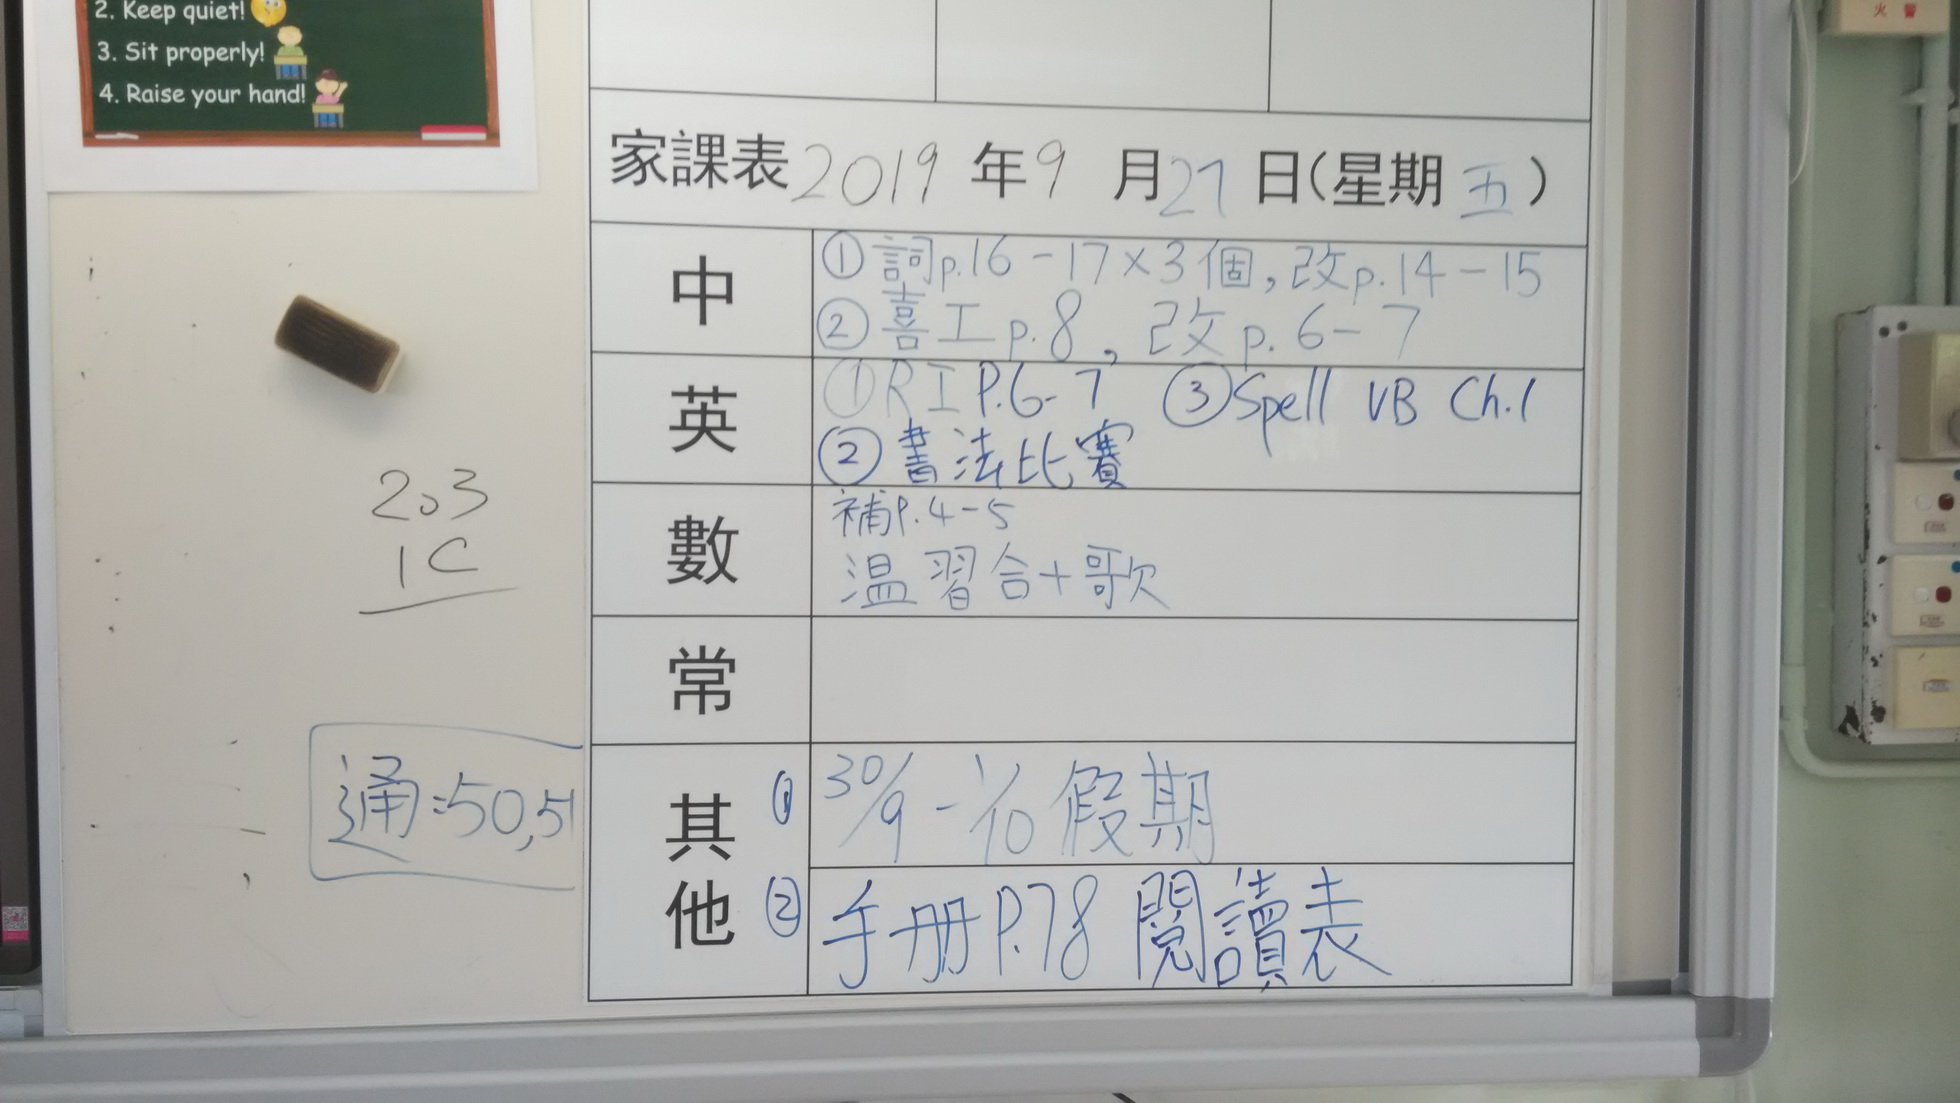 2. Keep quiet!
3. Sit properly!
4. Raise your hand!
家課表 2019 年 9 月 27 日(星期 五)
中
①詞p.16-17×3個,改p.14-15
②喜工p.8,改p.6-7
英
①RI P.6-7 ③Spell VB Ch.1
②書法比賽
數
補P.4-5
温習合+歌
常
其他
① 30/9 - 1/10 假期
② 手册P.78 閱讀表
203
1C
通:50,51
火警